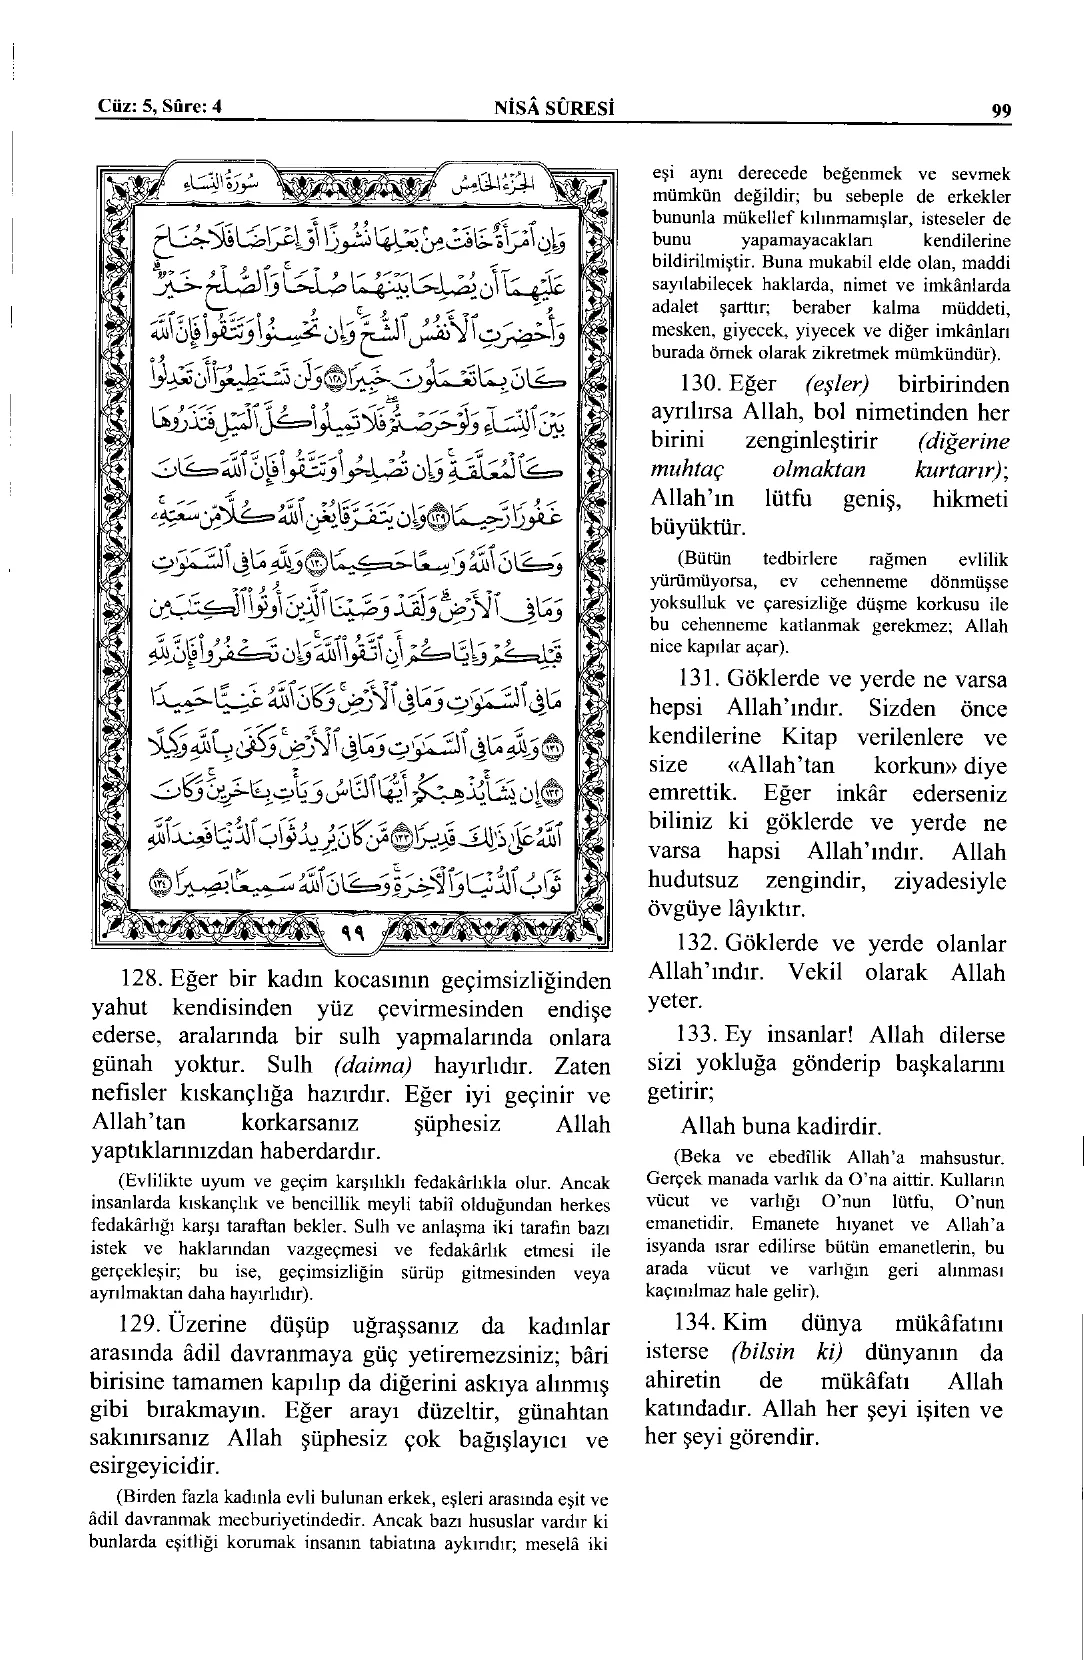 Cüz: 5, Sûre: 4
NİSÂ SÛRESİ
99
سورة النساء
الجزء الخامس
وَإِنِ امْرَأَةٌ خَافَتْ مِنْ بَعْلِهَا نُشُوزًا أَوْ إِعْرَاضًا فَلَا جُنَاحَ
عَلَيْهِمَا أَنْ يُصْلِحَا بَيْنَهُمَا صُلْحًا وَالصُّلْحُ خَيْرٌ
وَأُحْضِرَتِ الْأَنْفُسُ الشُّحَّ وَإِنْ تُحْسِنُوا وَتَتَّقُوا فَإِنَّ اللَّهَ
كَانَ بِمَا تَعْمَلُونَ خَبِيرًا ١٢٨ وَلَنْ تَسْتَطِيعُوا أَنْ تَعْدِلُوا
بَيْنَ النِّسَاءِ وَلَوْ حَرَصْتُمْ فَلَا تَمِيلُوا كُلَّ الْمَيْلِ فَتَذَرُوهَا
كَالْمُعَلَّقَةِ وَإِنْ تُصْلِحُوا وَتَتَّقُوا فَإِنَّ اللَّهَ كَانَ
غَفُورًا رَحِيمًا ١٢٩ وَإِنْ يَتَفَرَّقَا يُغْنِ اللَّهُ كُلًّا مِنْ سَعَتِهِ
وَكَانَ اللَّهُ وَاسِعًا حَكِيمًا ١٣٠ وَلِلَّهِ مَا فِي السَّمٰوَاتِ
وَمَا فِي الْأَرْضِ وَلَقَدْ وَصَّيْنَا الَّذِينَ أُوتُوا الْكِتٰبَ مِنْ
قَبْلِكُمْ وَإِيَّاكُمْ أَنِ اتَّقُوا اللَّهَ وَإِنْ تَكْفُرُوا فَإِنَّ لِلَّهِ
مَا فِي السَّمٰوَاتِ وَمَا فِي الْأَرْضِ وَكَانَ اللَّهُ غَنِيًّا حَمِيدًا
١٣١ وَلِلَّهِ مَا فِي السَّمٰوَاتِ وَمَا فِي الْأَرْضِ وَكَفَى بِاللَّهِ وَكِيلًا
١٣٢ إِنْ يَشَأْ يُذْهِبْكُمْ أَيُّهَا النَّاسُ وَيَأْتِ بِآخَرِينَ وَكَانَ
اللَّهُ عَلَى ذٰلِكَ قَدِيرًا ١٣٣ مَنْ كَانَ يُرِيدُ ثَوَابَ الدُّنْيَا فَعِنْدَ اللَّهِ
ثَوَابُ الدُّنْيَا وَالْآخِرَةِ وَكَانَ اللَّهُ سَمِيعًا بَصِيرًا ١٣٤
٩٩
128. Eğer bir kadın kocasının geçimsizliğinden
yahut kendisinden yüz çevirmesinden endişe
ederse, aralarında bir sulh yapmalarında onlara
günah yoktur. Sulh (daima) hayırlıdır. Zaten
nefisler kıskançlığa hazırdır. Eğer iyi geçinir ve
Allah’tan korkarsanız şüphesiz Allah
yaptıklarınızdan haberdardır.
(Evlilikte uyum ve geçim karşılıklı fedakârlıkla olur. Ancak
insanlarda kıskançlık ve bencillik meyli tabiî olduğundan herkes
fedakârlığı karşı taraftan bekler. Sulh ve anlaşma iki tarafın bazı
istek ve haklarından vazgeçmesi ve fedakârlık etmesi ile
gerçekleşir; bu ise, geçimsizliğin sürüp gitmesinden veya
ayrılmaktan daha hayırlıdır).
129. Üzerine düşüp uğraşsanız da kadınlar
arasında âdil davranmaya güç yetiremezsiniz; bâri
birisine tamamen kapılıp da diğerini askıya alınmış
gibi bırakmayın. Eğer arayı düzeltir, günahtan
sakınırsanız Allah şüphesiz çok bağışlayıcı ve
esirgeyicidir.
(Birden fazla kadınla evli bulunan erkek, eşleri arasında eşit ve
âdil davranmak mecburiyetindedir. Ancak bazı hususlar vardır ki
bunlarda eşitliği korumak insanın tabiatına aykırıdır; meselâ iki
eşi aynı derecede beğenmek ve sevmek
mümkün değildir; bu sebeple de erkekler
bununla mükellef kılınmamışlar, isteseler de
bunu yapamayacakları kendilerine
bildirilmiştir. Buna mukabil elde olan, maddi
sayılabilecek haklarda, nimet ve imkânlarda
adalet şarttır; beraber kalma müddeti,
mesken, giyecek, yiyecek ve diğer imkânları
burada örnek olarak zikretmek mümkündür).
130. Eğer (eşler) birbirinden
ayrılırsa Allah, bol nimetinden her
birini zenginleştirir (diğerine
muhtaç olmaktan kurtarır);
Allah’ın lütfu geniş, hikmeti
büyüktür.
(Bütün tedbirlere rağmen evlilik
yürümüyorsa, ev cehenneme dönmüşse
yoksulluk ve çaresizliğe düşme korkusu ile
bu cehenneme katlanmak gerekmez; Allah
nice kapılar açar).
131. Göklerde ve yerde ne varsa
hepsi Allah’ındır. Sizden önce
kendilerine Kitap verilenlere ve
size «Allah’tan korkun» diye
emrettik. Eğer inkâr ederseniz
biliniz ki göklerde ve yerde ne
varsa hapsi Allah’ındır. Allah
hudutsuz zengindir, ziyadesiyle
övgüye lâyıktır.
132. Göklerde ve yerde olanlar
Allah’ındır. Vekil olarak Allah
yeter.
133. Ey insanlar! Allah dilerse
sizi yokluğa gönderip başkalarını
getirir;
Allah buna kadirdir.
(Beka ve ebedîlik Allah’a mahsustur.
Gerçek manada varlık da O’na aittir. Kulların
vücut ve varlığı O’nun lütfu, O’nun
emanetidir. Emanete hıyanet ve Allah’a
isyanda ısrar edilirse bütün emanetlerin, bu
arada vücut ve varlığın geri alınması
kaçınılmaz hale gelir).
134. Kim dünya mükâfatını
isterse (bilsin ki) dünyanın da
ahiretin de mükâfatı Allah
katındadır. Allah her şeyi işiten ve
her şeyi görendir.